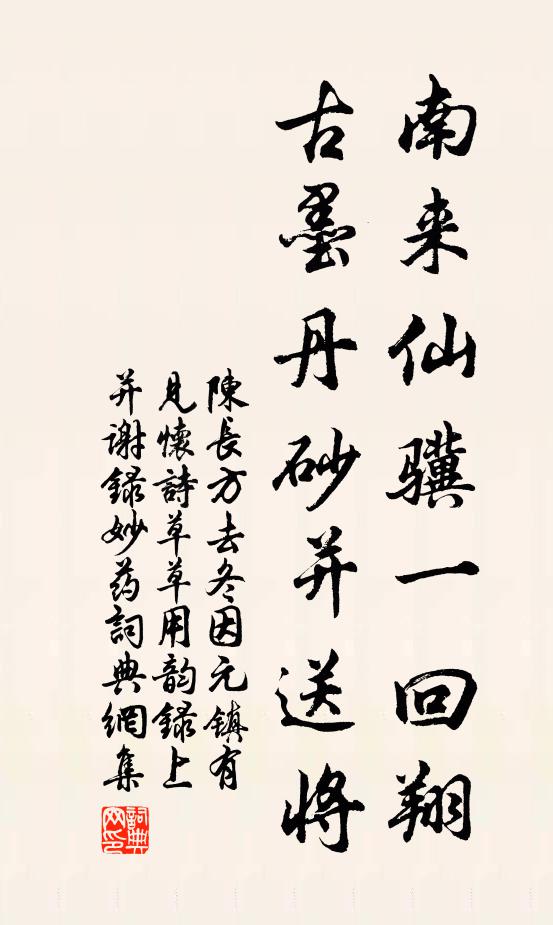 南来仙骥一回翔
古墨丹砂并送将
陳長方去冬因元鎮有
見懷詩草草用韵録上
并谢録妙药詞典網集
詞典網印